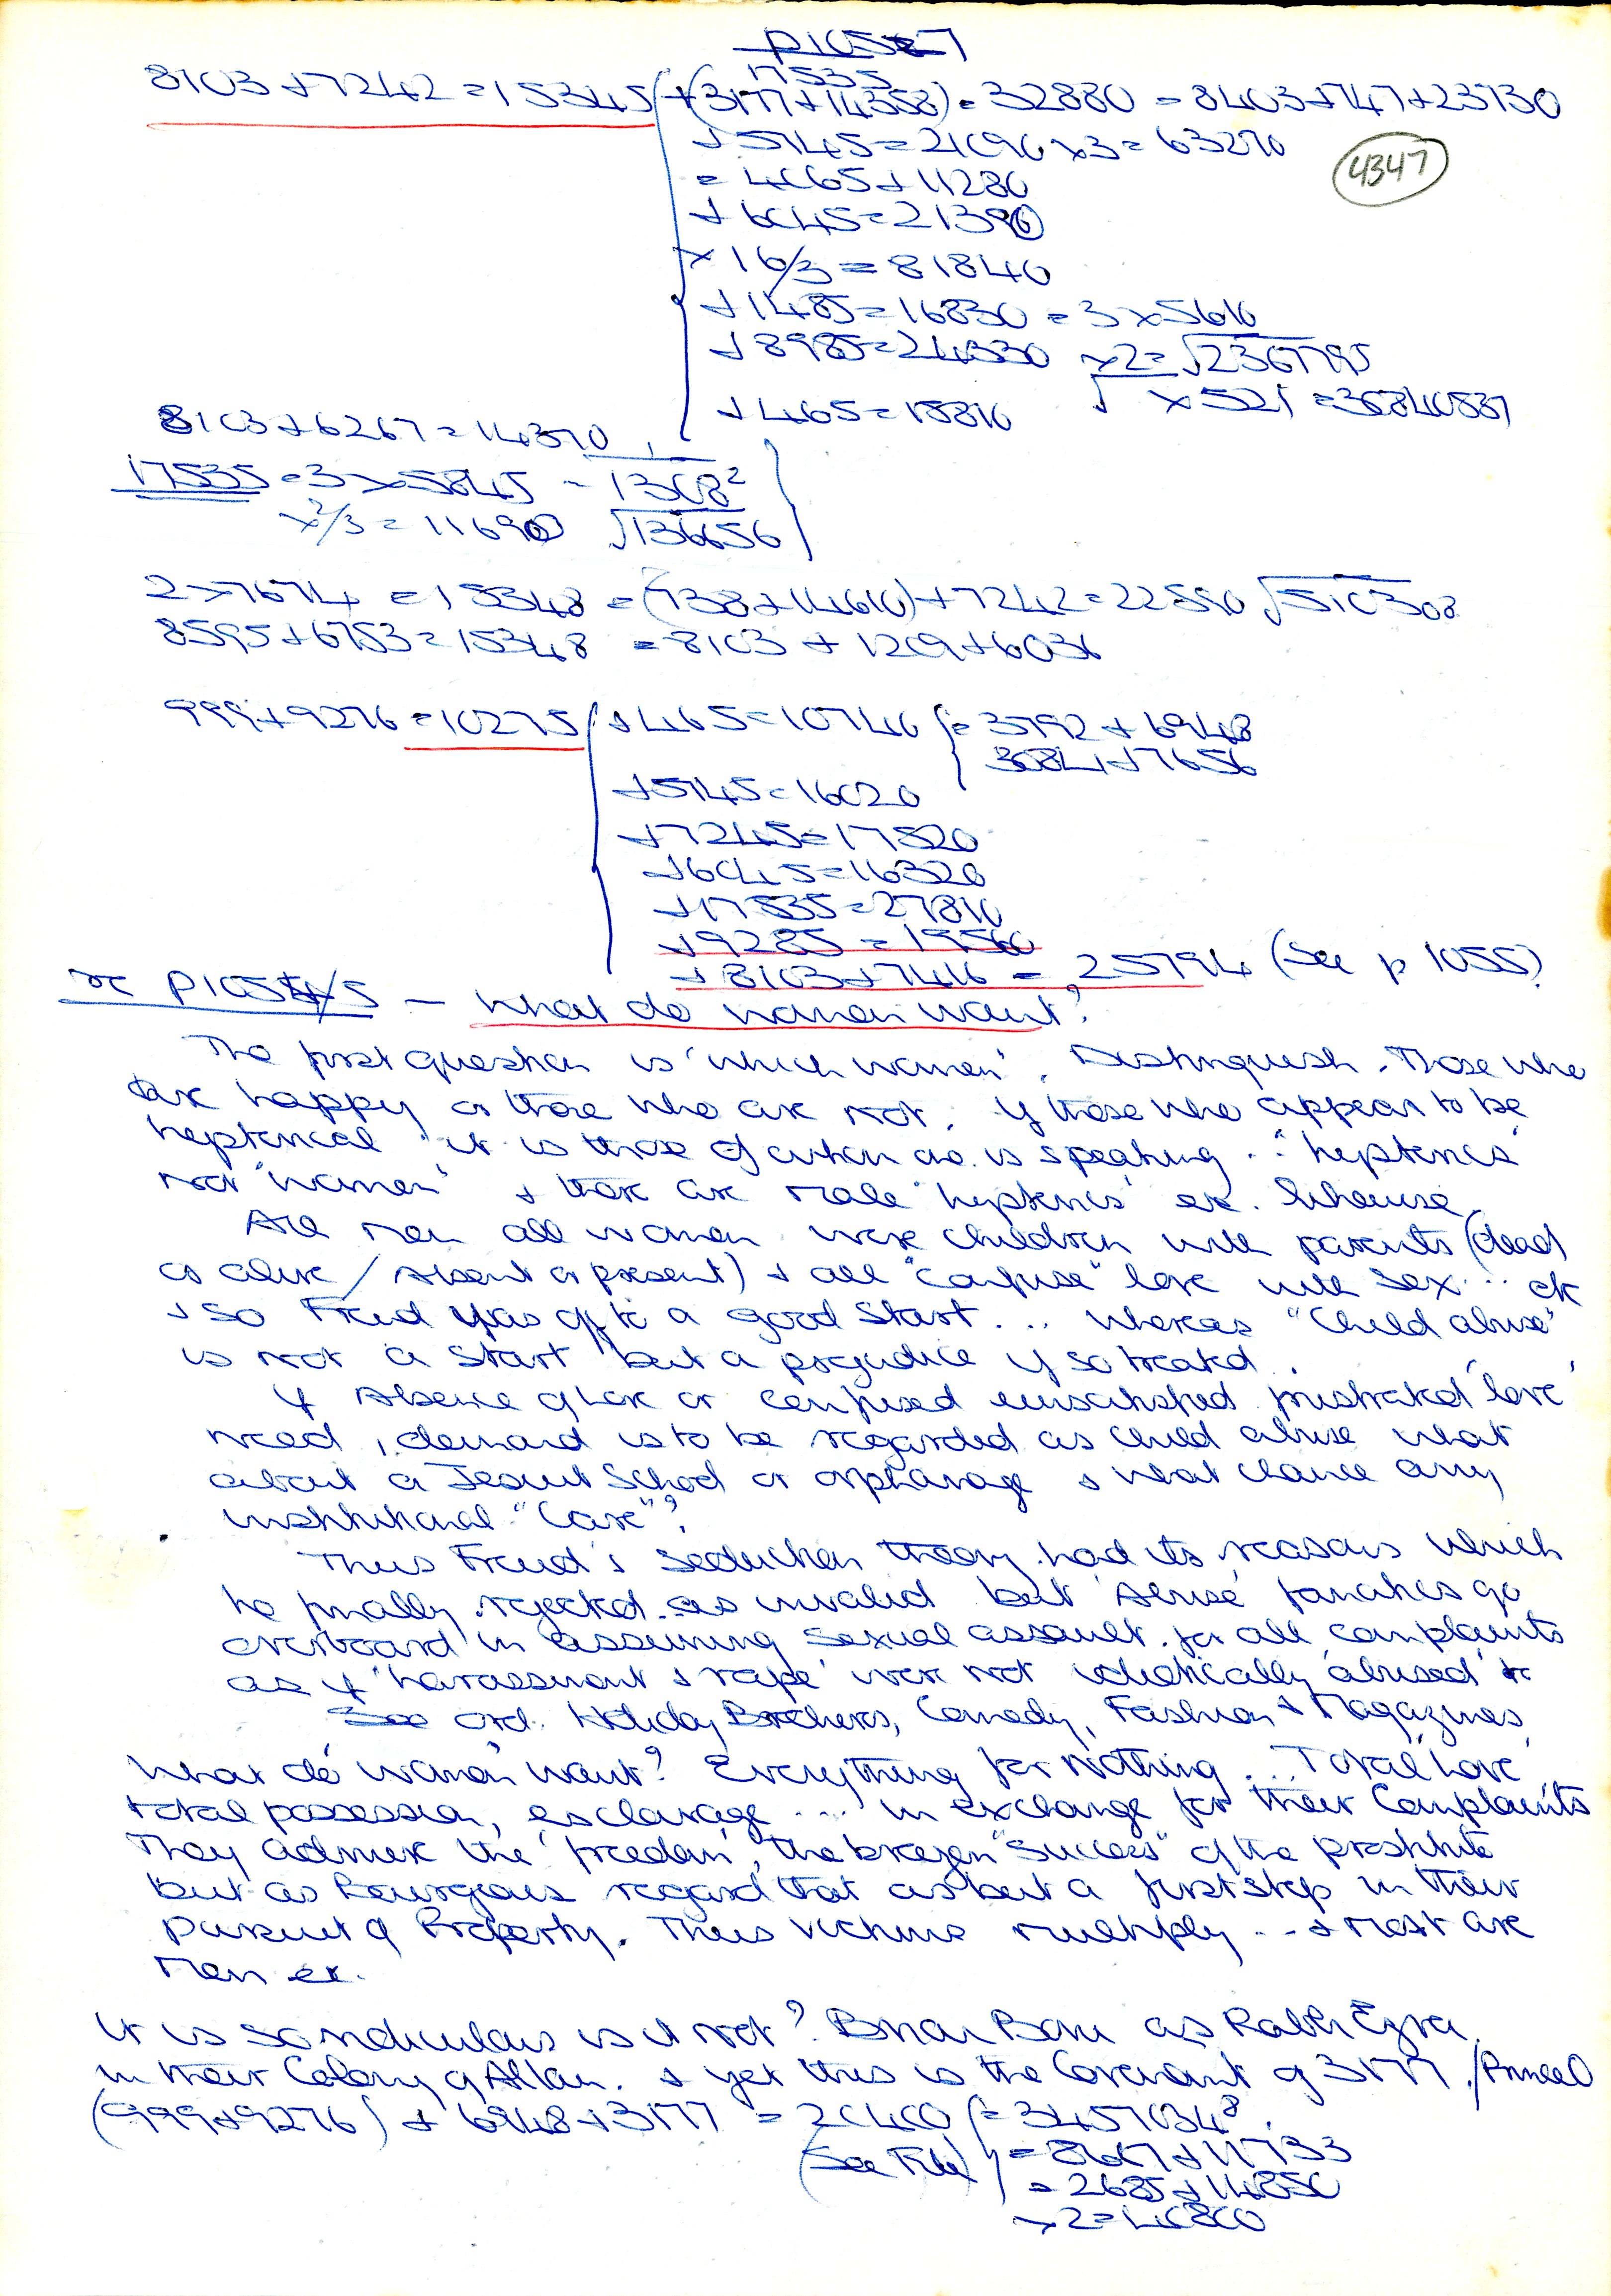 p1057
17535
8103 + 7242 = 15345 + (3177 + 14358) = 32880 = 8403 + 747 + 23730
4347
+ 5745 = 21090 x 3 = 63270
= 4065 + 11280
+ 6045 = 21390
x 16/3 = 81840
+ 1485 = 16830 = 3 x 5610
+ 8985 = 24330 x 2 = √2367795
+ 465 = 15810 √ x 521 =
8103 + 6267 = 14370
17535 = 3 x 5845 = 1308²
x 2/3 = 11690 √136656
2 x 7674 = 15348 = (738 + 14610) + 7242 = 22590 √510308
8595 + 6753 = 15348 = 8103 + 1209 + 6036
999 + 9276 = 10275 + 465 = 10740 = 3792 + 6948
3084 + 7656
+ 5745 = 16020
+ 7245 = 17520
+ 6045 = 16320
+ 17535 = 27810
+ 9285 = 19560
+ 8103 + 7416 = 25794 (See p 1055)
re P1054/5 — What do women want?
The first question is 'which women'. Distinguish. Those who
are happy or those who are not. If those who appear to be
hysterical it is those of whom is speaking ∴ "hysterics"
not "women" & there are male "hysterics" etc. likewise
All men all women were children with parents (dead
or alive / absent or present) & all "confuse" love with sex ... etc
& so Freud was off to a good start ... whereas "Child abuse"
is not a start but a prejudice if so treated.
If Absence of Love or confused unsatisfied frustrated 'love'
need, demand is to be regarded as child abuse what
about a Jesuit School or orphanage & what chance any
institutional "Care"?
Thus Freud's seduction theory had its reasons which
he finally rejected as invalid but 'Abuse' fanatics go
overboard in assuming sexual assault for all complaints
as if 'harassment & rape' were not idiotically 'abused'
See ord. Holiday Brochures, Comedy, Fashion & Magazines
What do 'women' want? Everything for Nothing ... Total Love
total possession, esclavage ... in exchange for their Complaints
They admire the 'freedom', the brazen "success" of the prostitute
but as Bourgeois regard that as but a first step in their
pursuit of Property. Thus victims multiply ... & most are
men etc.
It is so ridiculous is it not? Brian Bone as Rabbi Ezra
in their Colony of Allan. & yet this is the Covenant of 3177.
(999 + 9276) + 6948 + 3177 = 20400 = 34570348
(See File) = 8667 + 11733
= 2685 + 14850
x 2 = 40800